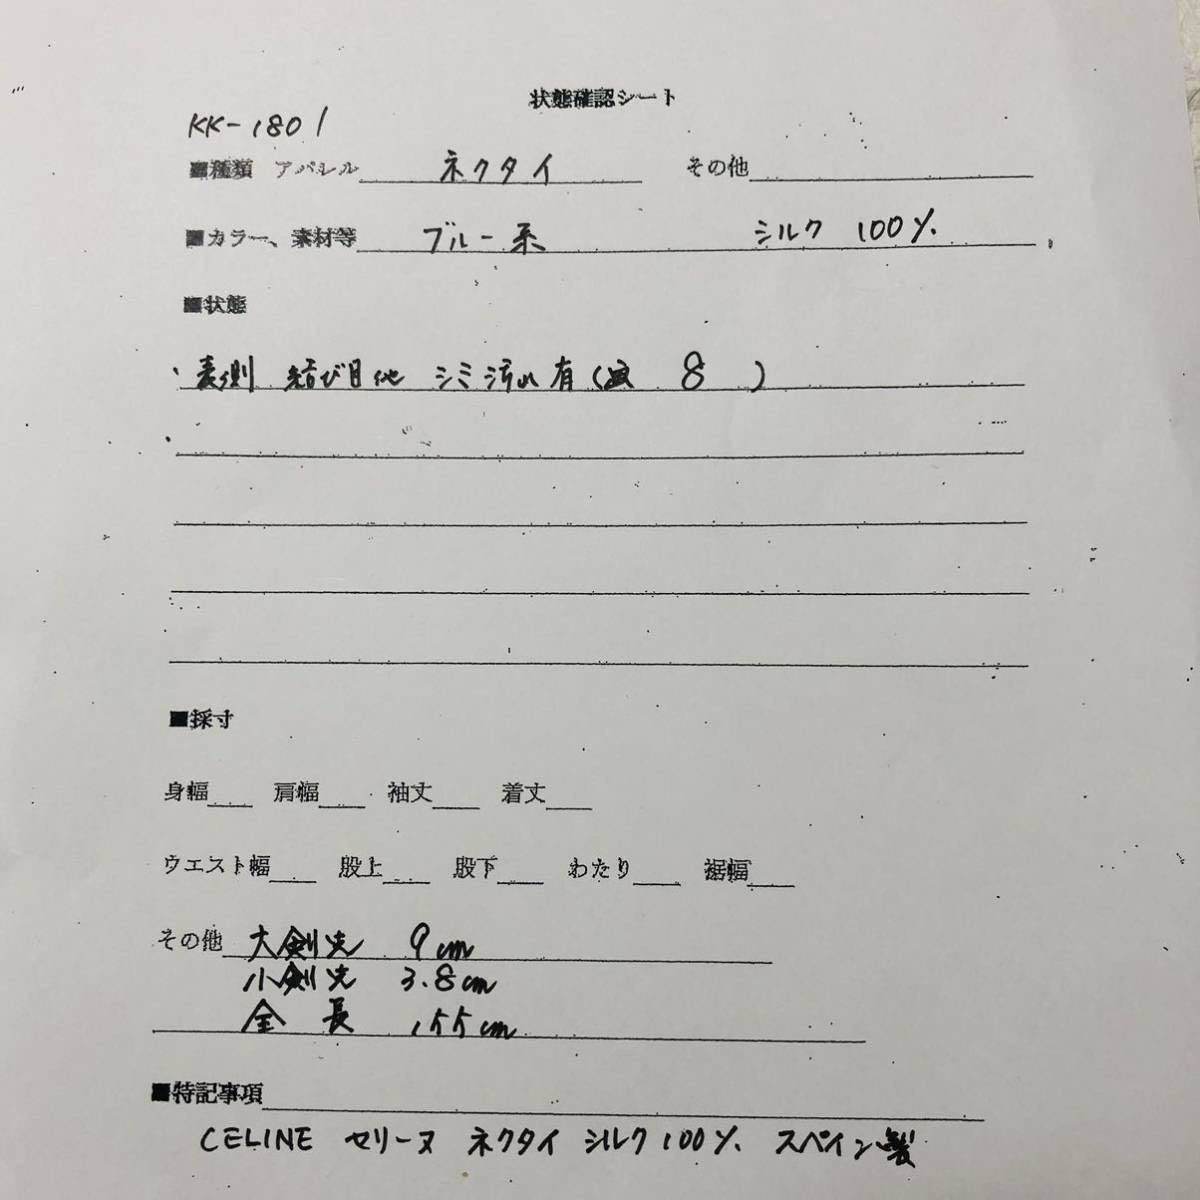 状態確認シート
KK-1801
■種類 アパレル ネクタイ その他
■カラー、素材等 ブルー系 シルク 100%
■状態
・表側 結び目他 シミ汚れ有( 8 )
■採寸
身幅 肩幅 袖丈 着丈
ウエスト幅 股上 股下 わたり 裾幅
その他 大剣先 9cm
小剣先 3.8cm
全長 155cm
■特記事項
CELINE セリーヌ ネクタイ シルク100% スペイン製